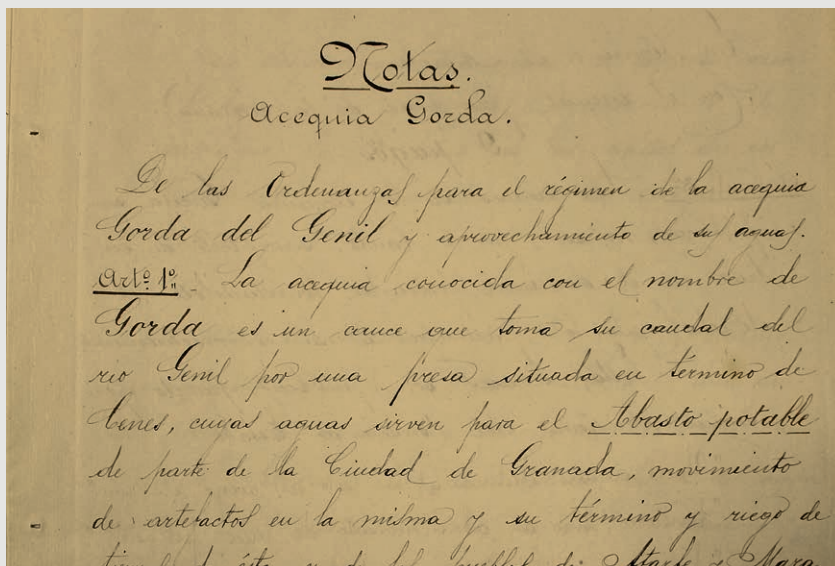 Notas.
Acequia Gorda.
De las Ordenanzas para el régimen de la acequia
Gorda del Genil y aprovechamiento de sus aguas.
Artº 1º. La acequia conocida con el nombre de
Gorda es un cauce que toma su caudal del
rio Genil por una presa situada en término de
Cenes, cuyas aguas sirven para el Abasto potable
de parte de la Ciudad de Granada, movimiento
de artefactos en la misma y su término y riego de